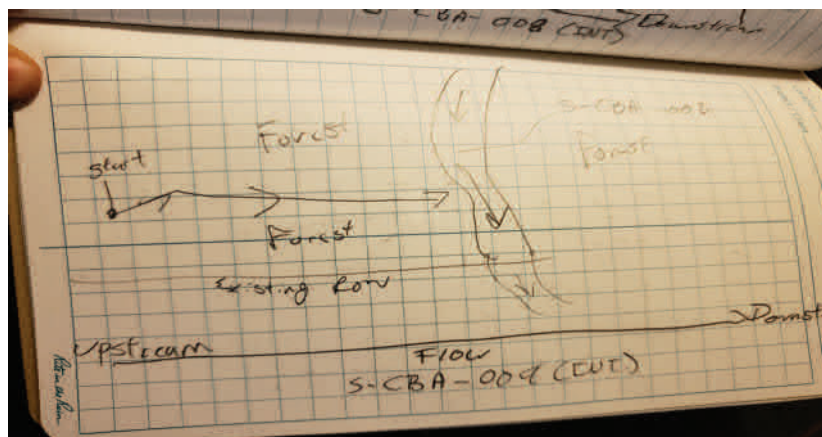 S-CBA-008 (INT) Downstream
Forest
S-CBA 008
Forest
start
Forest
Existing Row
Upstream
Downst
Flow
S-CBA-009 (INT)
Rite in the Rain